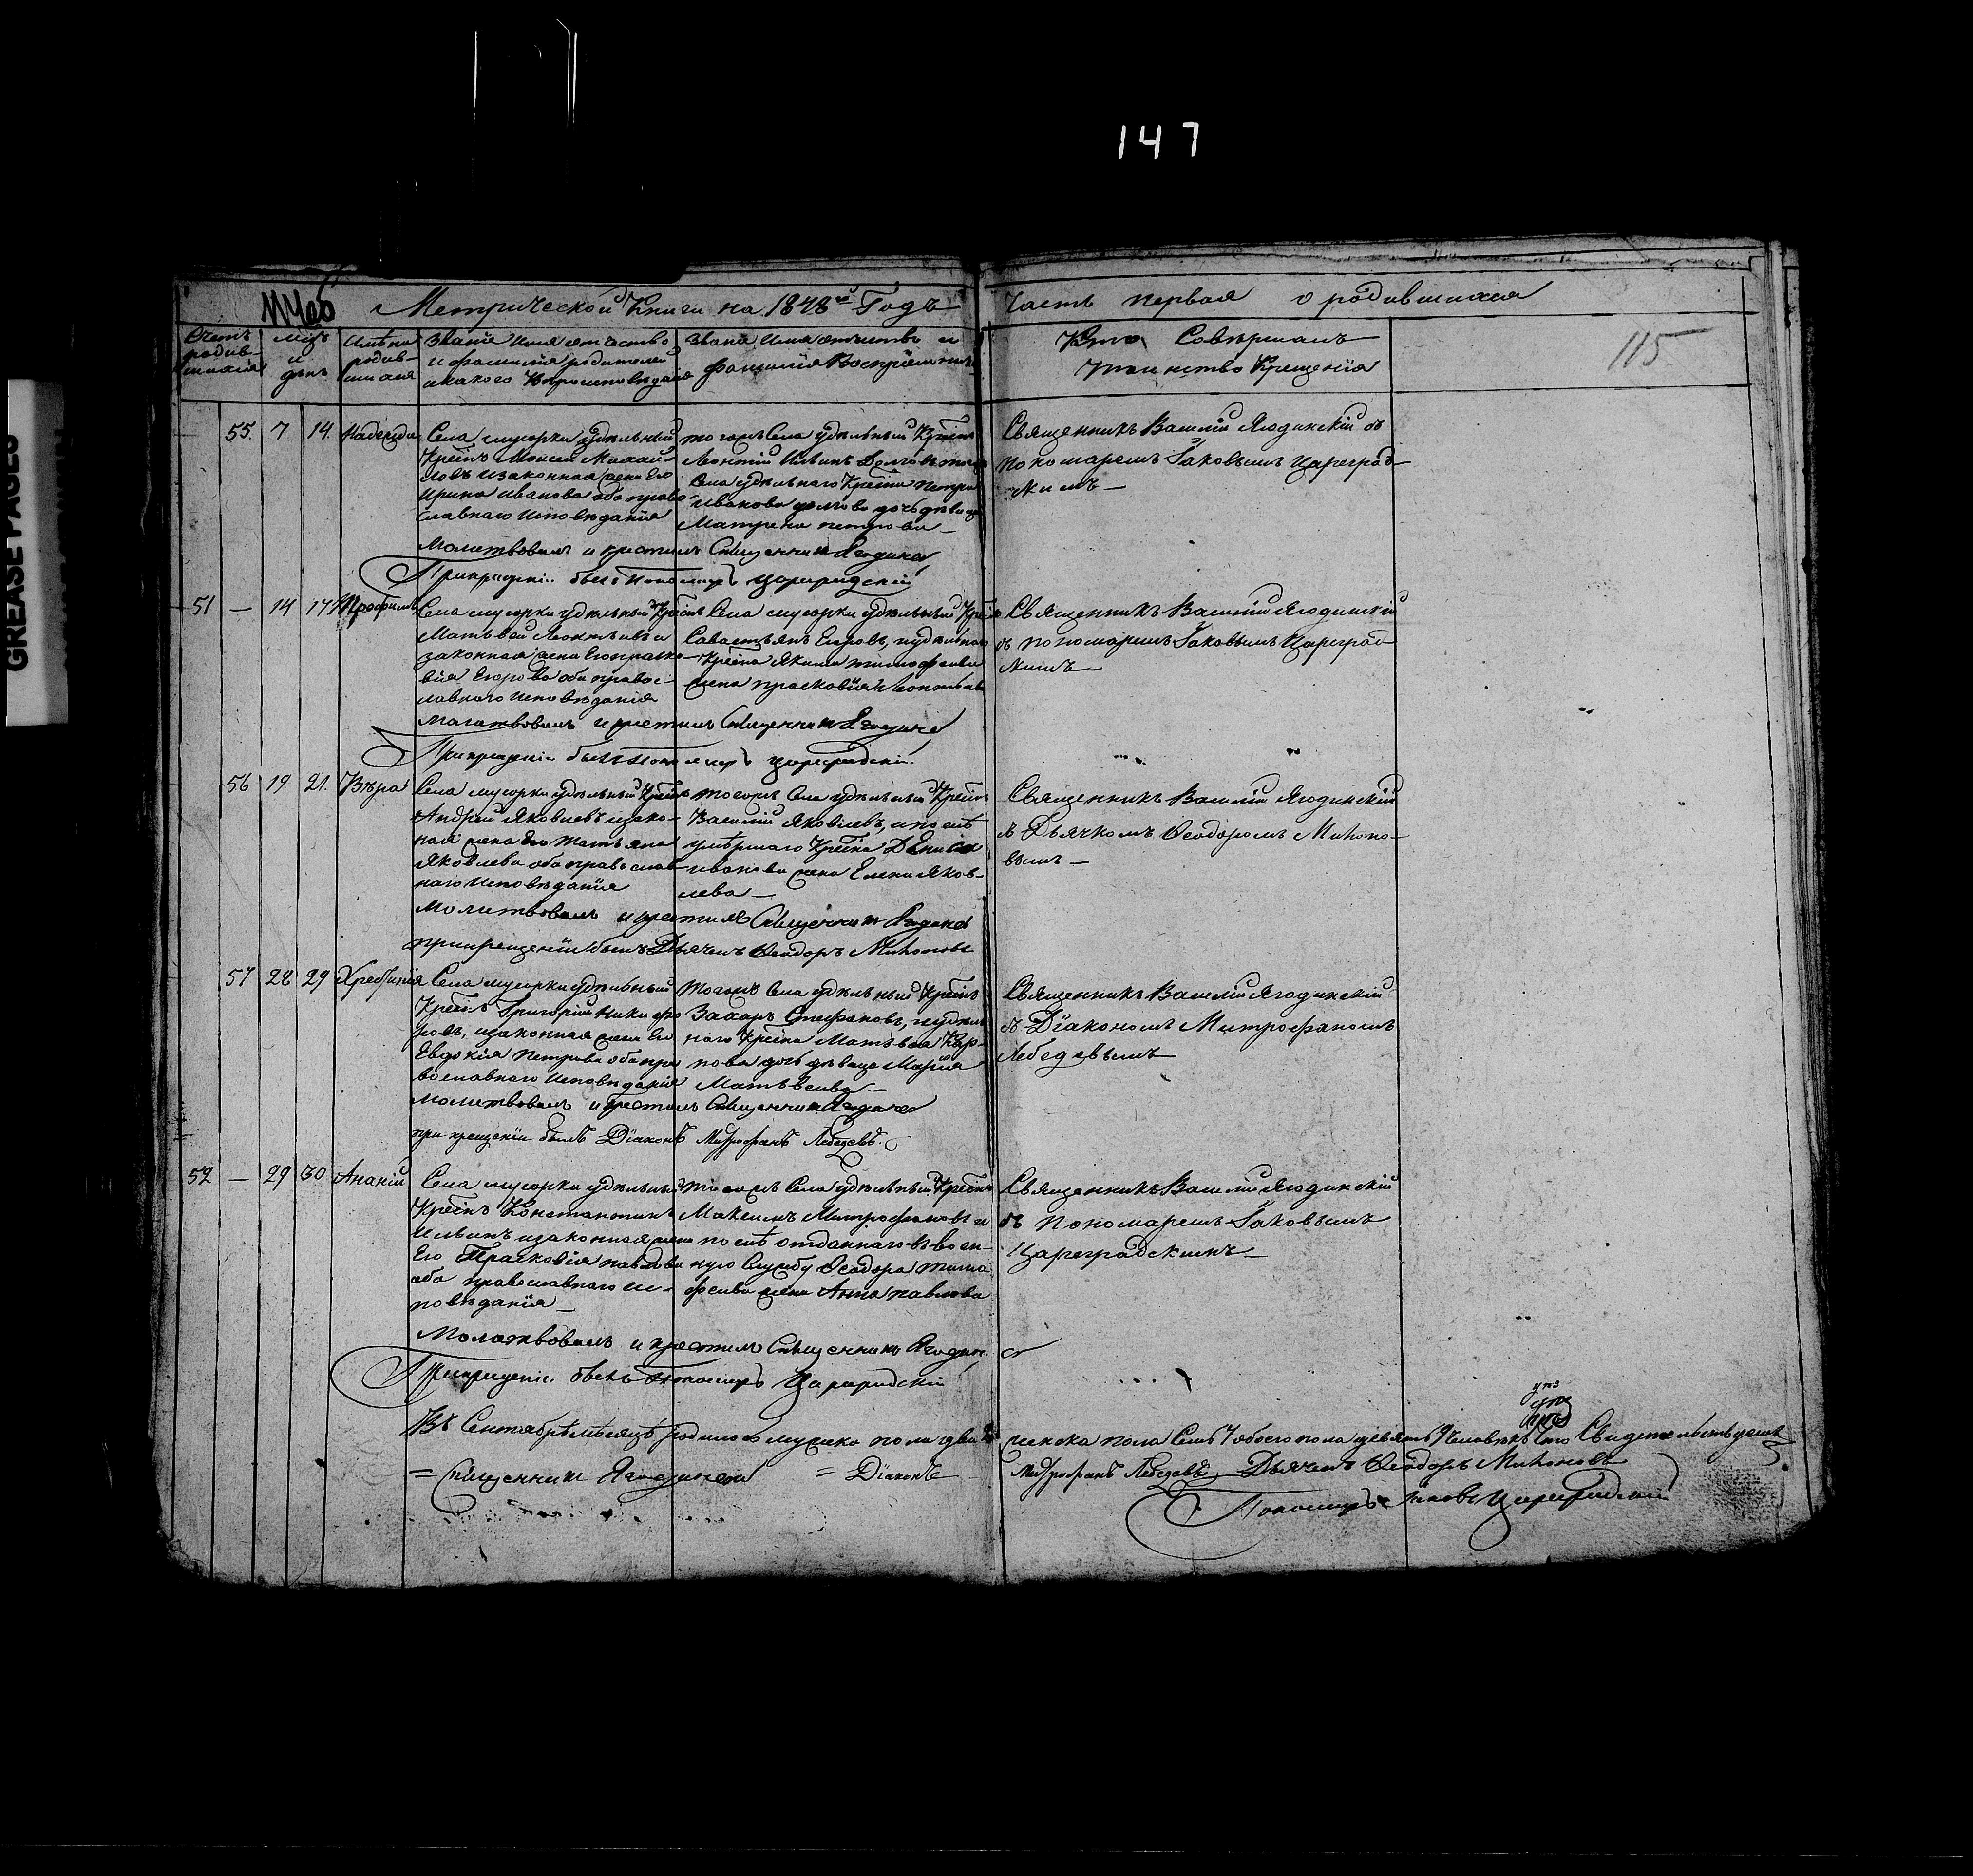 147
GREASE PAGES
Метрической Книги на 1848й Годъ
Часть первая о родившихся
115
Счетъ родив-
шихся
и
день
Имена
родив-
шихся
Званіе Имя отчество
и фамилія родителей
и какого Вероисповеданія
Званіе Имя отчество и
фамилія Воспріемник.
Кто Совершалъ
Таинство Крещенія
55. 7 14. Надежда
Села мусорки удельный
Крестнъ Моисей Михай-
ловъ и законная жена Его
Ирина Иванова оба право-
славнаго Исповеданія
тогожъ Села удельный Крестнъ
Леонтій Ильинъ Долговъ тогожъ
Села удельнаго Крестна Петра
Иванова долгова дочь девица
Матрена петрова
Священникъ Василій Ягодинскій съ
пономаремъ Іаковымъ Цареград-
скимъ
Молитвовалъ и крестилъ Священникъ Ягодинск
При крещеніи былъ Пономарь Цареградскій
51 — 14 17 Трофимъ
Села мусорки удельный Крестнъ
Матвей Леонтьевъ и
законная жена Его праско-
вія Егорова оба правос-
лавнаго Исповеданія
Села мусорки удельный Крестнъ
Савастьянъ Егоровъ, и удельнаго
Крестна Якима тимофеева
жена прасковія Леонтьева
Священникъ Василій Ягодинскій
съ пономаремъ Іаковымъ Цареград-
скимъ
Молитвовалъ и крестилъ Священникъ Ягодинск
При крещеніи былъ Пономарь Цареградскій.
56 19 21. Вера
Села мусорки удельный Крестнъ
Андрей Яковлевъ и зако-
ная жена Его Татьяна
Яковлева оба православ-
наго Исповеданія
тогожъ Села удельный Крестнъ
Василій Яковлевъ, и после
умершаго Крестна Дениса
иванова жена Елена Яков-
лева
Священникъ Василій Ягодинскій
съ Дьячкомъ Ѳеодоромъ Миѳоно-
вымъ
Молитвовалъ и крестилъ Священникъ Ягодинск
при крещеніи былъ Дьячекъ Ѳеодоръ Миѳоновъ
57 28 29
Села мусорки удельный
Крестнъ Григорій Никифо-
ровъ, и законная жена Его
Евдокія Петрова оба пра-
вославнаго Исповеданія
тогожъ Села удельный Крестнъ
Захаръ Стефановъ, и удель-
наго Крестна Матвея Кар-
пова дочь девица Марія
Матвеева
Священникъ Василій Ягодинскій
съ Діакономъ Митрофаномъ
Лебедевымъ
Молитвовалъ и крестилъ Священникъ Ягодинск
при крещеніи былъ Діаконъ Митрофанъ Лебедевъ.
52 — 29 30 Ананій
Села мусорки удельный
Крестнъ Константинъ
Ильинъ и законная жена
Его Прасковія павлова
оба православнаго ис-
поведанія
тогожъ Села удельный Крестнъ
Максимъ Митрофановъ и
после отданнаго въ воен-
ную Службу Ѳеодора тимо-
феева жена Анна павлова
Священникъ Василій Ягодинскій
съ Пономаремъ Іаковымъ
Цареградскимъ
Молитвовалъ и крестилъ Священникъ Ягодинск
При крещеніи былъ Пономарь Цареградскій
Въ Сентябре месяце родилось мужеска пола два 2 женска пола Семь 7 обоего пола девять 9 Человекъ Что Свидетельствуемъ
Священникъ Ягодинскій Діаконъ Митрофанъ Лебедевъ Дьячекъ Ѳеодоръ Миѳоновъ
Пономарь Іаковъ Цареградскій